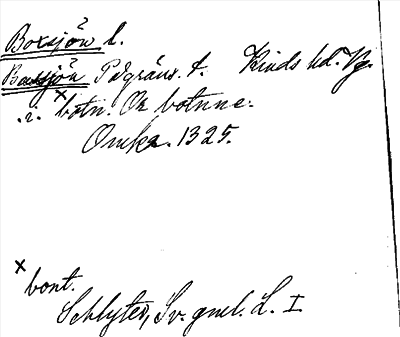 Boxsjön l.
Boxsjön Kinds hd. Vg.
.i. × botn. Ok botnne.
Omkr. 1325.
× bont.
Schlyter, Sv. gml. L. I